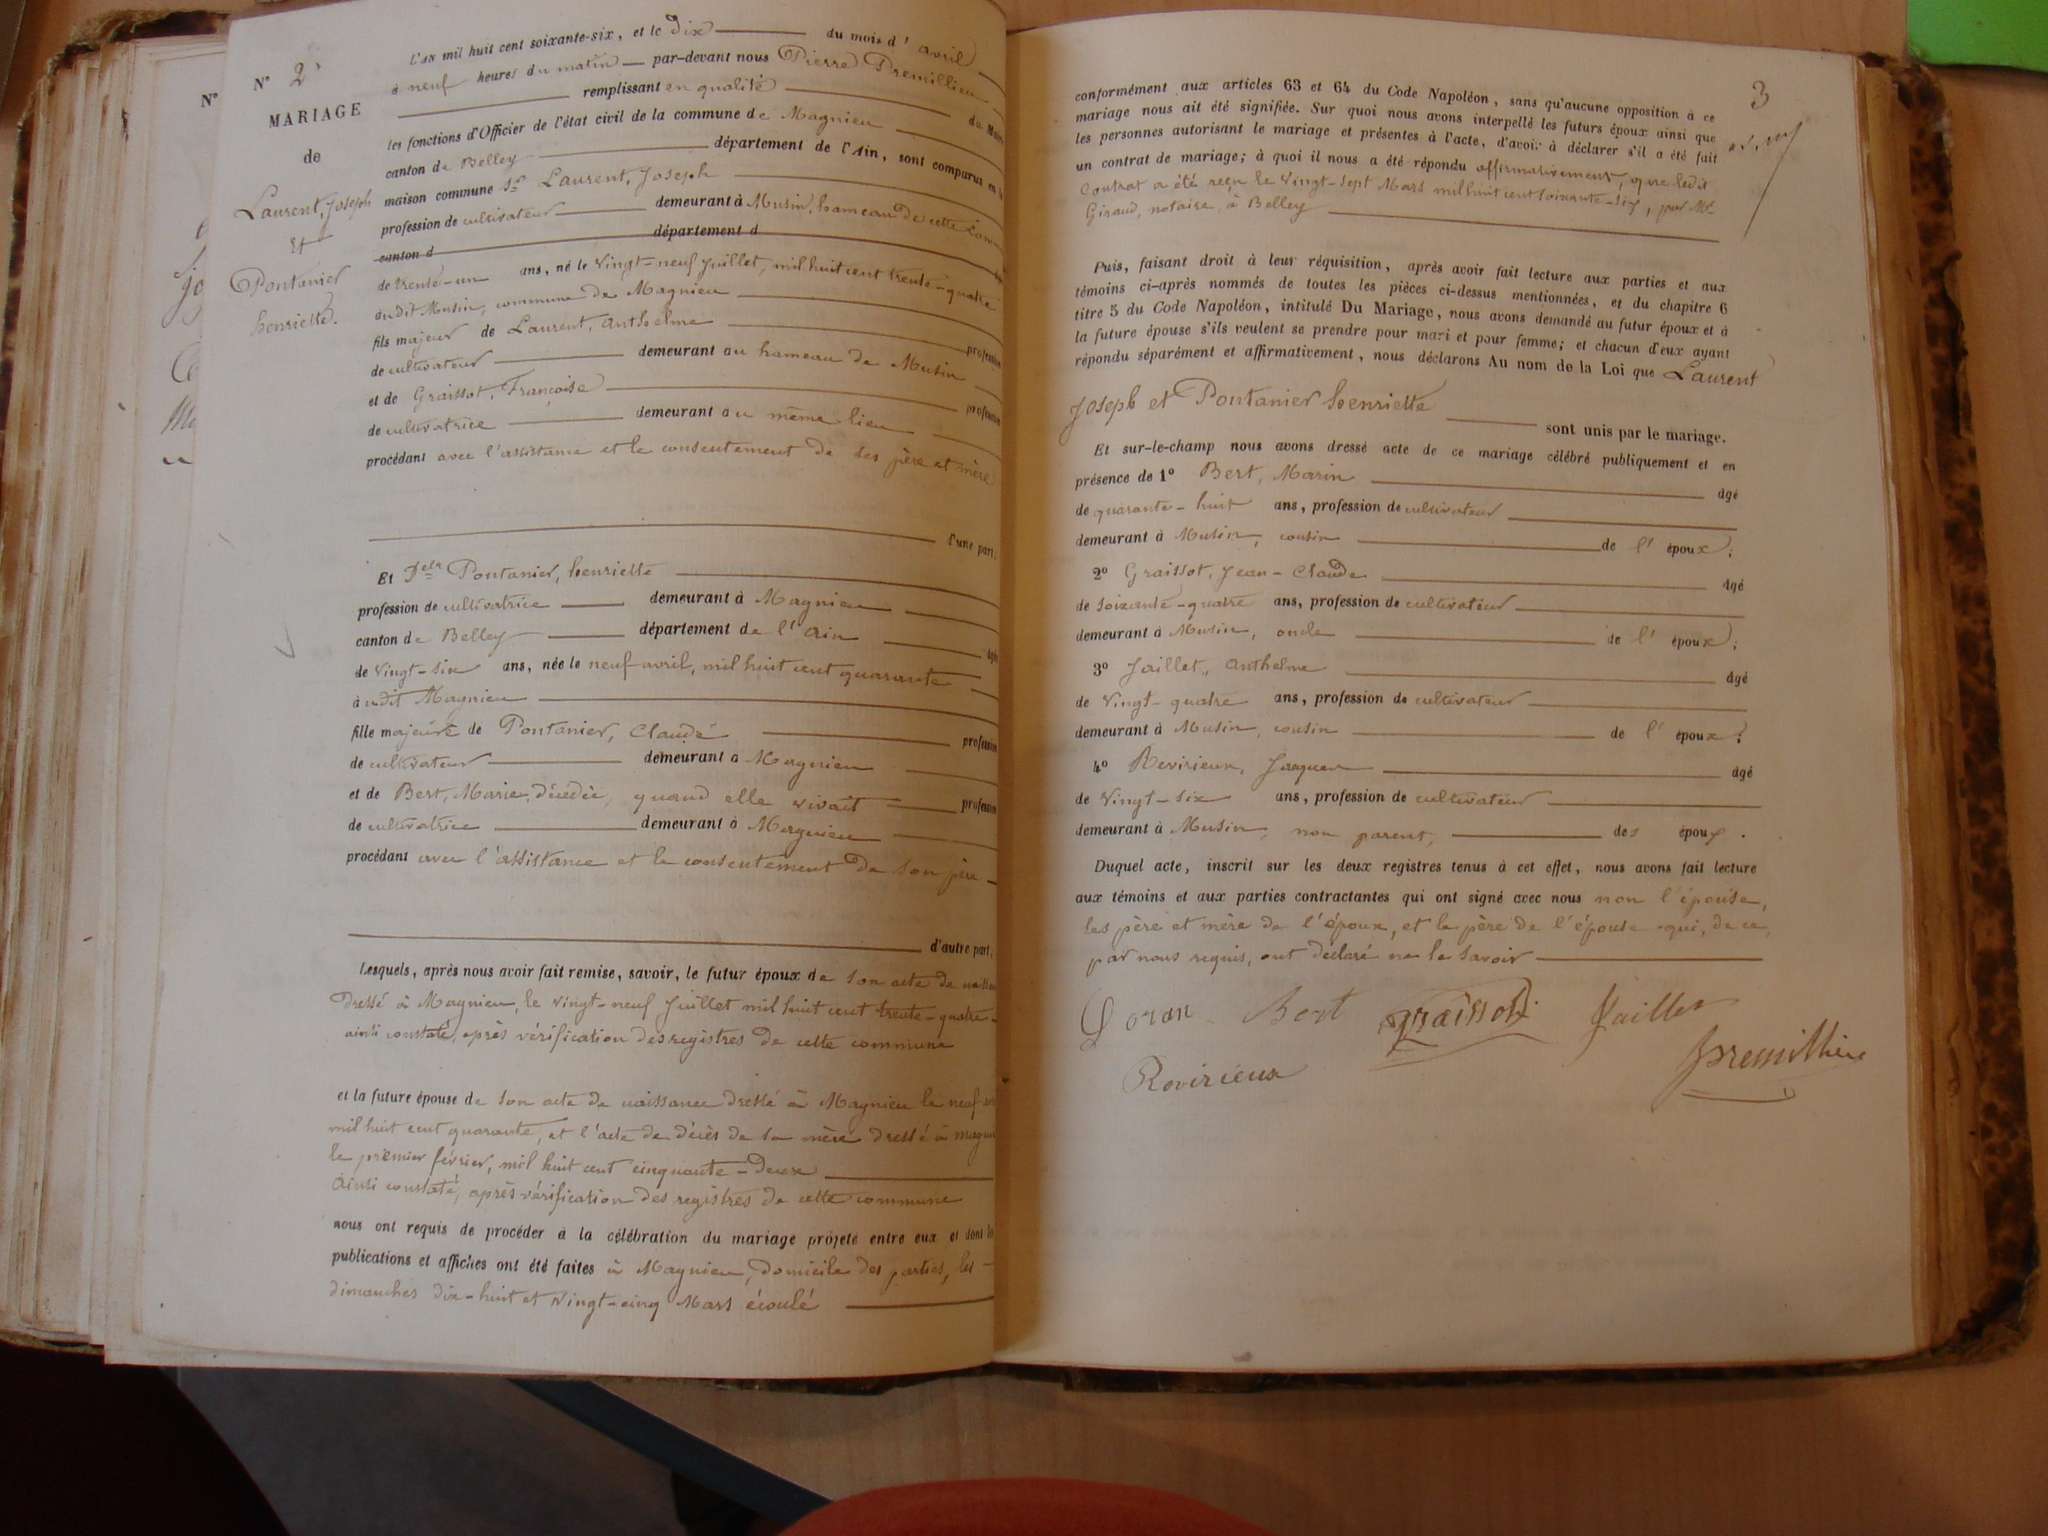 N°
N° 2.
MARIAGE
de
Laurent, Joseph
Et
Pontanier
henriette.
L'an mil huit cent soixante-six, et le dix du mois d'avril
à neuf heures du matin par-devant nous Pierre Premillieu
remplissant en qualité de Maire
les fonctions d'Officier de l'état civil de la commune de Magnieu
canton de Belley département de l'Ain, sont comparus en la
maison commune Sr Laurent, Joseph
profession de cultivateur demeurant à Musin, hameau de cette Com
canton d département d
de trente-un ans, né le vingt-neuf Juillet, mil huit cent trente-quatre
audit Musin, commune de Magnieu
fils majeur de Laurent, Anthelme profession
de cultivateur demeurant au hameau de Musin
et de Graissot, Françoise profession
de cultivatrice demeurant au même lieu
procédant avec l'assistance et le consentement de ses père et mère
d'une part;
Et Delle Pontanier, henriette
profession de cultivatrice demeurant à Magnieu
canton de Belley département de l'Ain âgée
de vingt-six ans, née le neuf avril, mil huit cent quarante
audit Magnieu
fille majeure de Pontanier, Claude profession
de cultivateur demeurant à Magnieu
et de Bert, Marie, décédée, quand elle vivait profession
de cultivatrice demeurant à Magnieu
procédant avec l'assistance et le consentement de son père
d'autre part,
Lesquels, après nous avoir fait remise, savoir, le futur époux de son acte de naissan
dressé à Magnieu, le vingt-neuf Juillet mil huit cent trente-quatre
ainsi constaté, après vérification des registres de cette commune
et la future épouse de son acte de naissance dressé à Magnieu le neuf avr
mil huit cent quarante, et l'acte de décès de sa mère dressé à magni
le premier février, mil huit cent cinquante-deux
Ainsi constaté, après vérification des registres de cette commune
nous ont requis de procéder à la célébration du mariage projeté entre eux et dont les
publications et affiches ont été faites à Magnieu, domicile des parties, les
dimanches dix-huit et vingt-cinq Mars écoulé
3
conformément aux articles 63 et 64 du Code Napoléon, sans qu'aucune opposition à ce
mariage nous ait été signifiée. Sur quoi nous avons interpellé les futurs époux ainsi que
les personnes autorisant le mariage et présentes à l'acte, d'avoir à déclarer s'il a été fait
un contrat de mariage; à quoi il nous a été répondu affirmativement, que ledit
Contrat a été reçu le vingt-sept Mars mil huit cent soixante-six, par Me
Giraud, notaire, à Belley
Puis, faisant droit à leur réquisition, après avoir fait lecture aux parties et aux
témoins ci-après nommés de toutes les pièces ci-dessus mentionnées, et du chapitre 6
titre 5 du Code Napoléon, intitulé Du Mariage, nous avons demandé au futur époux et à
la future épouse s'ils veulent se prendre pour mari et pour femme; et chacun d'eux ayant
répondu séparément et affirmativement, nous déclarons Au nom de la Loi que Laurent
Joseph et Pontanier henriette
sont unis par le mariage.
Et sur-le-champ nous avons dressé acte de ce mariage célébré publiquement et en
présence de 1° Bert, Marin âgé
de quarante-huit ans, profession de cultivateur
demeurant à Musin, cousin de l'époux;
2° Graissot, Jean-Claude âgé
de soixante-quatre ans, profession de cultivateur
demeurant à Musin, oncle de l'époux;
3° Jaillet, Anthelme âgé
de vingt-quatre ans, profession de cultivateur
demeurant à Musin, cousin de l'époux;
4° Revirieux, Jacques âgé
de vingt-six ans, profession de cultivateur
demeurant à Musin, non parent, des époux.
Duquel acte, inscrit sur les deux registres tenus à cet effet, nous avons fait lecture
aux témoins et aux parties contractantes qui ont signé avec nous non l'épouse,
les père et mère de l'époux, et le père de l'épouse qui, de ce,
par nous requis, ont déclaré ne le savoir
Loran Bert graissot Jaillet
Revirieux premillieu